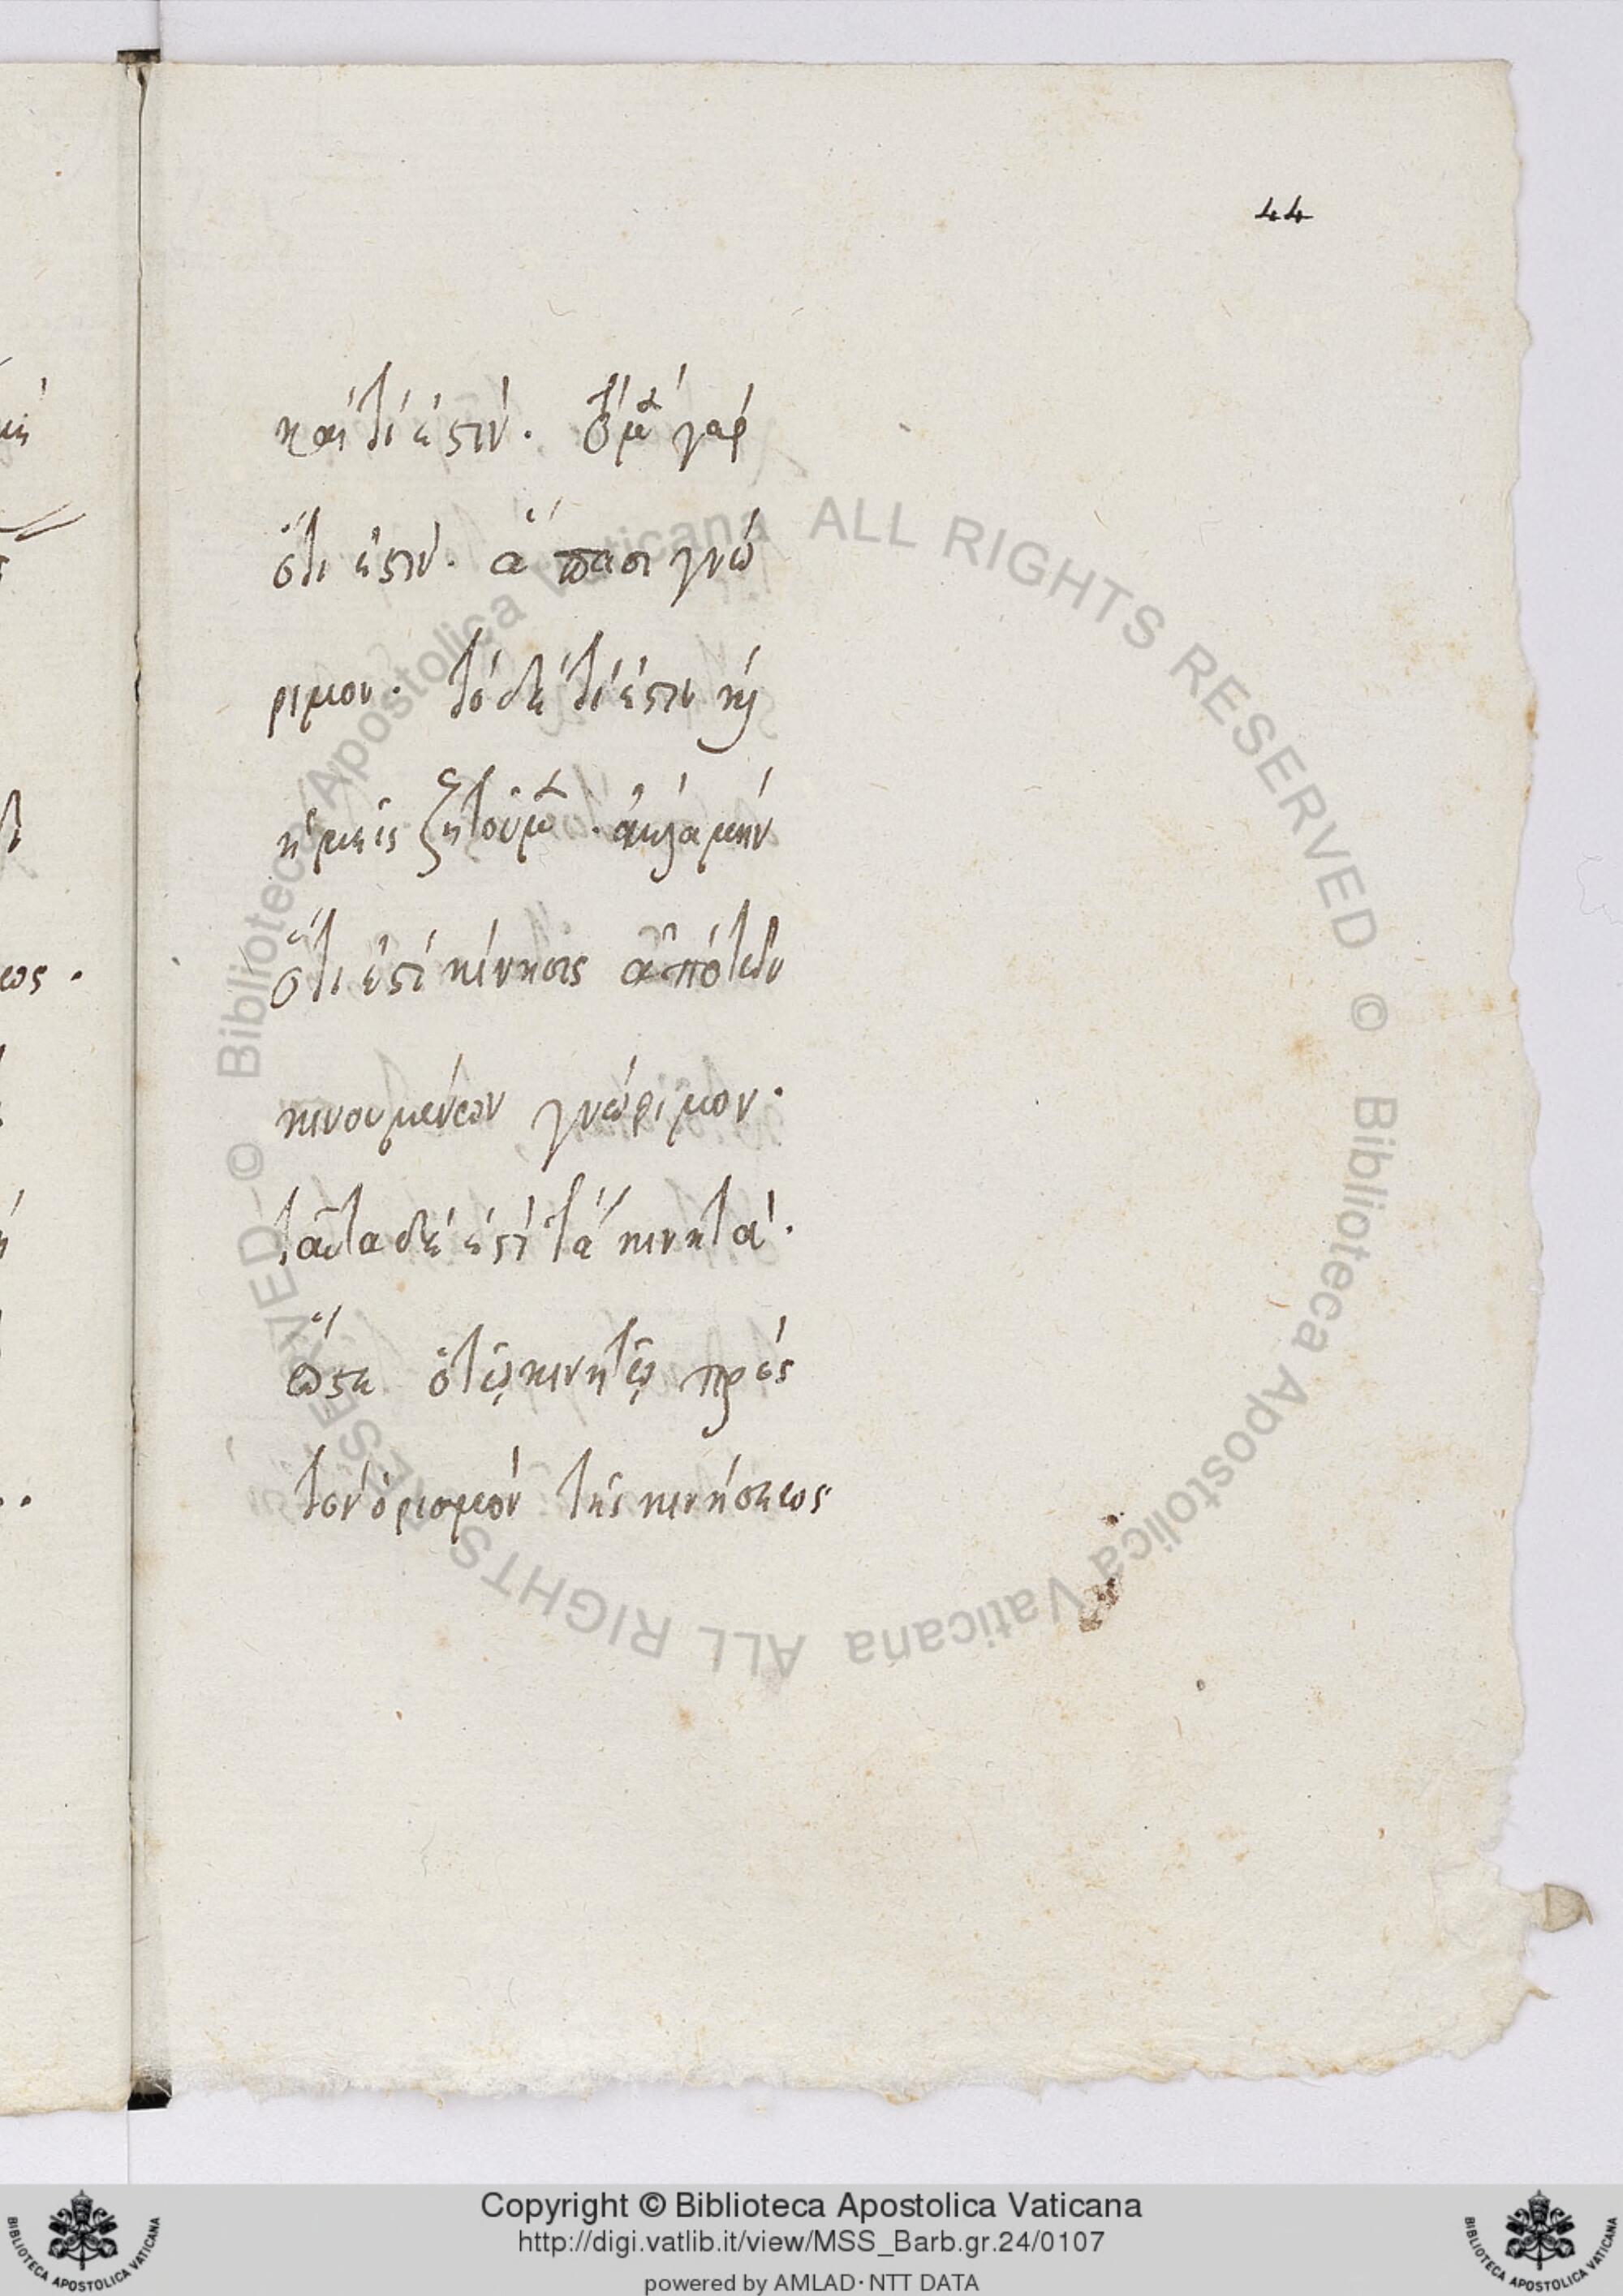 44
καὶ τί ἐστιν. γὰρ
ὅτι ἐστὶν. ἅπασι γνώ
ριμον. τὸ δὲ τί ἐστιν καὶ
ἡμεῖς ζητοῦμ. ἀλλὰ μὴν
ὅτι ἐστὶ κίνησις ἀπὸ τῶν
κινουμένων γνώριμον.
ταῦτα δέ ἐστὶ τὰ κινητά.
ὥστε ὁ τῷ κινητῷ πρὸς
τὸν ὁρισμὸν τῆς κινήσεως
Biblioteca Apostolica Vaticana ALL RIGHTS RESERVED ©
Biblioteca Apostolica Vaticana ALL RIGHTS RESERVED ©
Copyright © Biblioteca Apostolica Vaticana
http://digi.vatlib.it/view/MSS_Barb.gr.24/0107
powered by AMLAD·NTT DATA
BIBLIOTECA APOSTOLICA VATICANA
BIBLIOTECA APOSTOLICA VATICANA